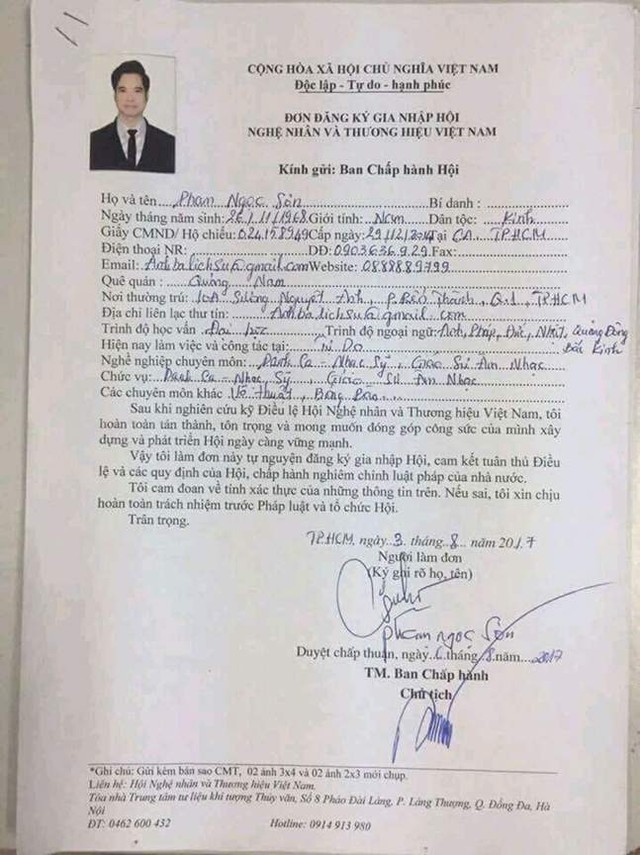 CỘNG HÒA XÃ HỘI CHỦ NGHĨA VIỆT NAM
Độc lập - Tự do - hạnh phúc
ĐƠN ĐĂNG KÝ GIA NHẬP HỘI
NGHỆ NHÂN VÀ THƯƠNG HIỆU VIỆT NAM
Kính gửi: Ban Chấp hành Hội
Họ và tên Phạm Ngọc Sơn Bí danh :
Ngày tháng năm sinh: 26/11/1968 Giới tính: Nam Dân tộc: Kinh
Giấy CMND/ Hộ chiếu: 024158949 Cấp ngày: 29/12/2014 Tại CA. TPHCM
Điện thoại NR: DĐ: 0903636929 Fax:
Email: Anhbalichsu@gmail.com Website: 0888889799
Quê quán : Quảng Nam
Nơi thường trú: 10A Sương Nguyệt Ánh, P. Bến Thành, Q1, TPHCM
Địa chỉ liên lạc thư tín: Anhbalichsu@gmail com
Trình độ học vấn Đại học Trình độ ngoại ngữ: Anh, Pháp, Đức, Nhật, Quảng Đông
Bắc Kinh
Hiện nay làm việc và công tác tại: Tự Do
Nghề nghiệp chuyên môn: Danh Ca - Nhạc Sỹ, Giáo Sư Âm Nhạc
Chức vụ: Danh Ca - Nhạc Sỹ, Giáo Sư Âm Nhạc
Các chuyên môn khác Võ Thuật,
Sau khi nghiên cứu kỹ Điều lệ Hội Nghệ nhân và Thương hiệu Việt Nam, tôi
hoàn toàn tán thành, tôn trọng và mong muốn đóng góp công sức của mình xây
dựng và phát triển Hội ngày càng vững mạnh.
Vậy tôi làm đơn này tự nguyện đăng ký gia nhập Hội, cam kết tuân thủ Điều
lệ và các quy định của Hội, chấp hành nghiêm chỉnh luật pháp của nhà nước.
Tôi cam đoan về tính xác thực của những thông tin trên. Nếu sai, tôi xin chịu
hoàn toàn trách nhiệm trước Pháp luật và tổ chức Hội.
Trân trọng.
TPHCM, ngày 3 tháng 8 năm 2017
Người làm đơn
(Ký ghi rõ họ, tên)
Phạm Ngọc Sơn
Duyệt chấp thuận, ngày 6 tháng 8 năm 2017
TM. Ban Chấp hành
Chủ tịch
*Ghi chú: Gửi kèm bản sao CMT, 02 ảnh 3x4 và 02 ảnh 2x3 mới chụp.
Liên hệ: Hội Nghệ nhân và Thương hiệu Việt Nam.
Tòa nhà Trung tâm tư liệu khí tượng Thủy văn, Số 8 Pháo Đài Láng, P. Láng Thượng, Q. Đống Đa, Hà
Nội
ĐT: 0462 600 432 Hotline: 0914 913 980